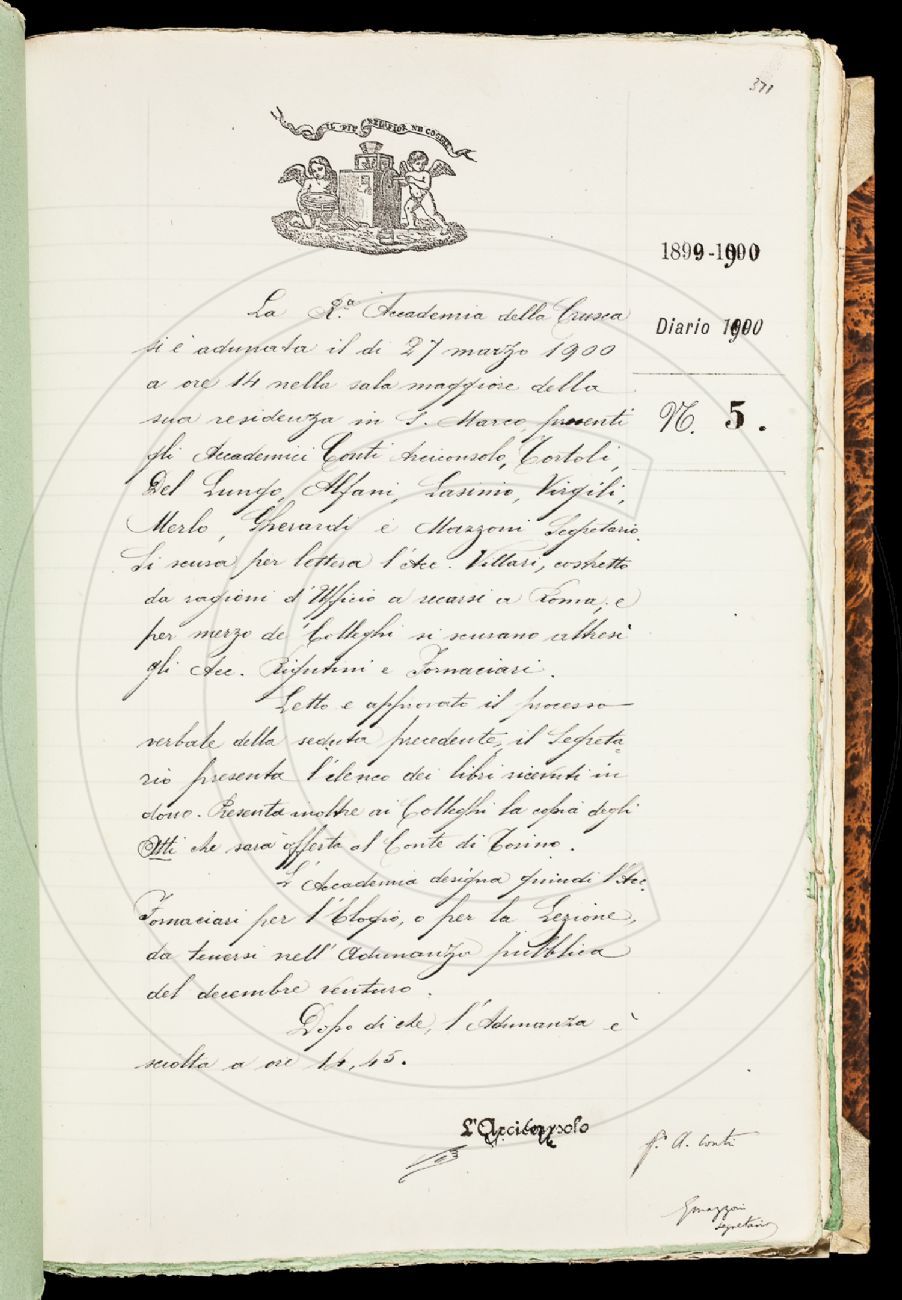 371
IL PIÙ BEL FIOR NE COGLIE
1899-1900
Diario 1900
N. 5.
La R.ª Accademia della Crusca
si è adunata il dì 27 marzo 1900
a ore 14 nella sala maggiore della
sua residenza in S. Marco, presenti
gli Accademici Conti Arciconsolo, Tortoli,
Del Lungo, Alfani, Lasinio, Virgili,
Merlo, Gherardi e Mazzoni Segretario.
Si scusa per lettera l'Acc. Villari, costretto
da ragioni d'Ufficio a recarsi a Roma; e
per mezzo de' Colleghi si scusano altresì
gli Acc. Rigutini e Fornaciari.
Letto e approvato il processo
verbale della seduta precedente, il Segreta-
rio presenta l'elenco dei libri ricevuti in
dono. Presenta inoltre ai Colleghi la copia degli
Atti che sarà offerta al Conte di Torino.
L'Accademia designa quindi l'Acc.
Fornaciari per l'Elogio, o per la Lezione,
da tenersi nell'Adunanza pubblica
del decembre venturo.
Dopo di che, l'Adunanza è
sciolta a ore 14,45.
L'Arciconsolo
f.º A. Conti
GMazzoni
segretario